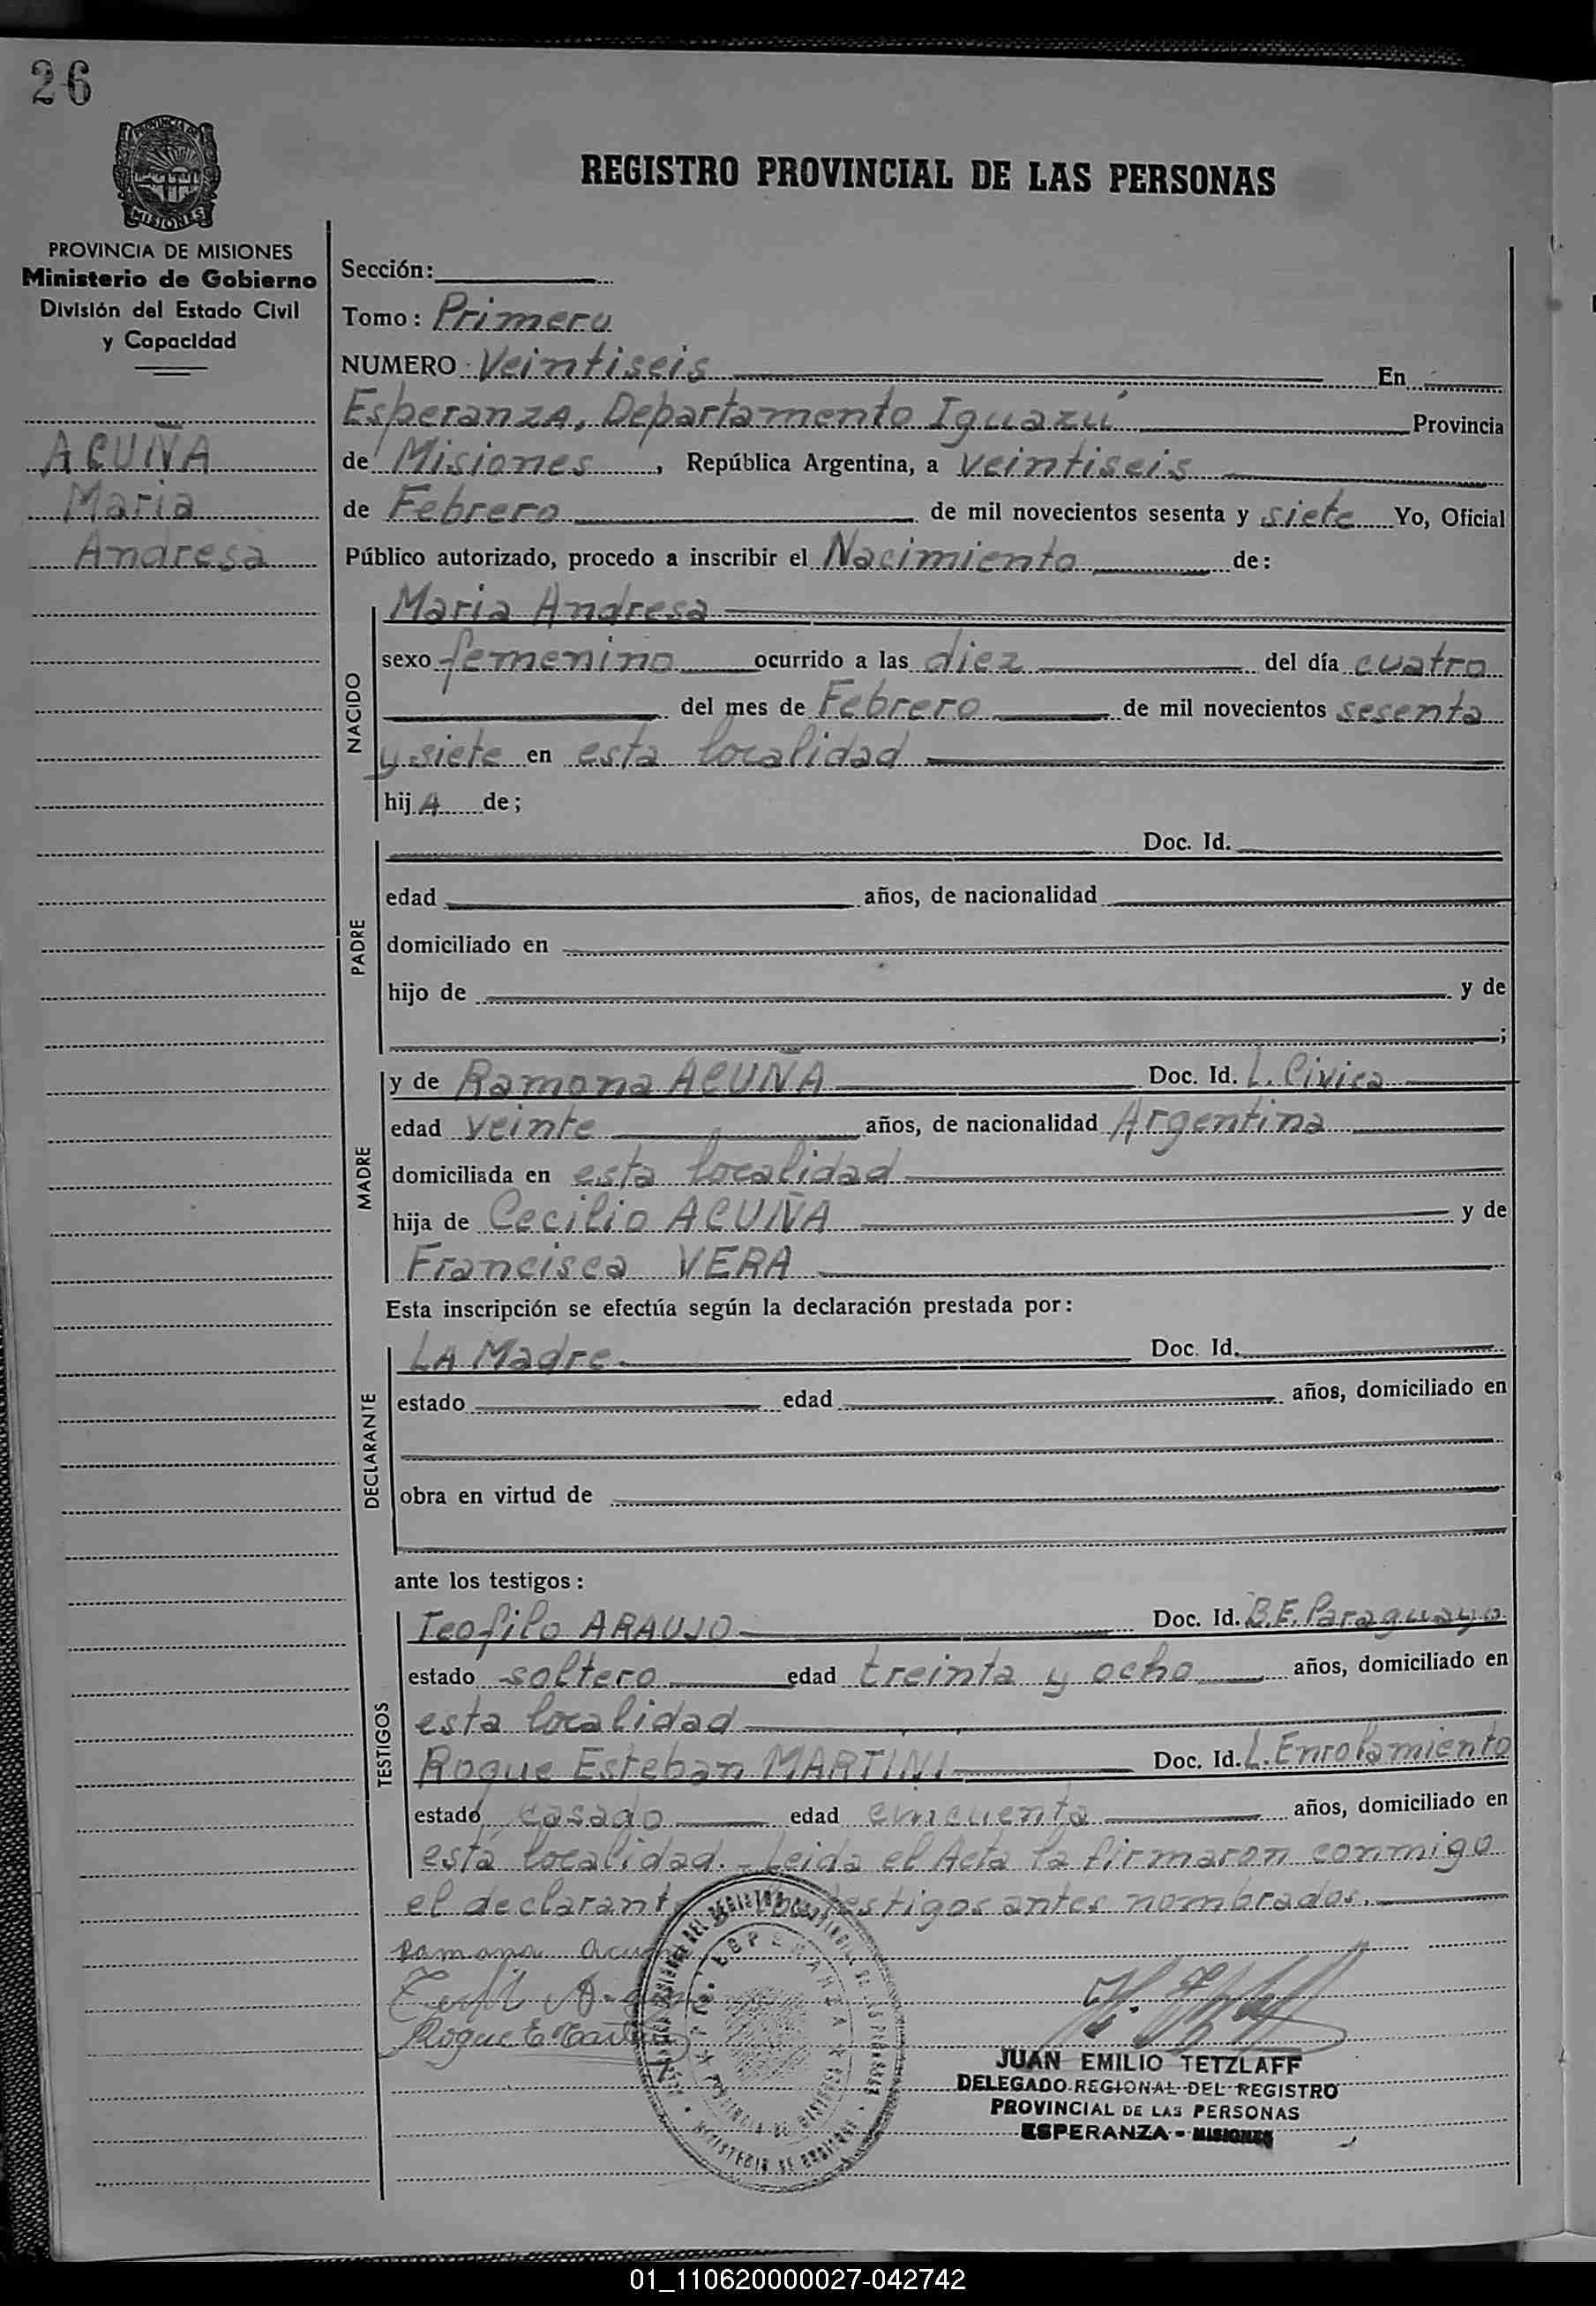 26
PROVINCIA DE
MISIONES
PROVINCIA DE MISIONES
Ministerio de Gobierno
División del Estado Civil
y Capacidad
ACUÑA
Maria
Andresa
REGISTRO PROVINCIAL DE LAS PERSONAS
Sección:
Tomo: Primero
NUMERO Veintiseis En
Esperanza, Departamento Iguazú Provincia
de Misiones, República Argentina, a veintiseis
de Febrero de mil novecientos sesenta y siete Yo, Oficial
Público autorizado, procedo a inscribir el Nacimiento de:
NACIDO
Maria Andresa
sexo femenino ocurrido a las diez del día cuatro
del mes de Febrero de mil novecientos sesenta
y siete en esta localidad
hij A de;
PADRE
Doc. Id.
edad años, de nacionalidad
domiciliado en
hijo de y de
;
MADRE
y de Ramona ACUÑA Doc. Id. L. Civica
edad veinte años, de nacionalidad Argentina
domiciliada en esta localidad
hija de Cecilio ACUÑA y de
Francisca VERA
Esta inscripción se efectúa según la declaración prestada por:
DECLARANTE
LA Madre Doc. Id.
estado edad años, domiciliado en
obra en virtud de
ante los testigos:
TESTIGOS
Teofilo ARAUJO Doc. Id. B.E. Paraguayo
estado soltero edad treinta y ocho años, domiciliado en
esta localidad
Roque Esteban MARTINI Doc. Id. L. Enrolamiento
estado casado edad cincuenta años, domiciliado en
esta localidad. - Leida el Acta la firmaron conmigo
el declarant testigos antes nombrados.
Ramona Acuña
Roque E Martini
JUAN EMILIO TETZLAFF
DELEGADO REGIONAL DEL REGISTRO
PROVINCIAL DE LAS PERSONAS
ESPERANZA - MISIONES
01_110620000027-042742